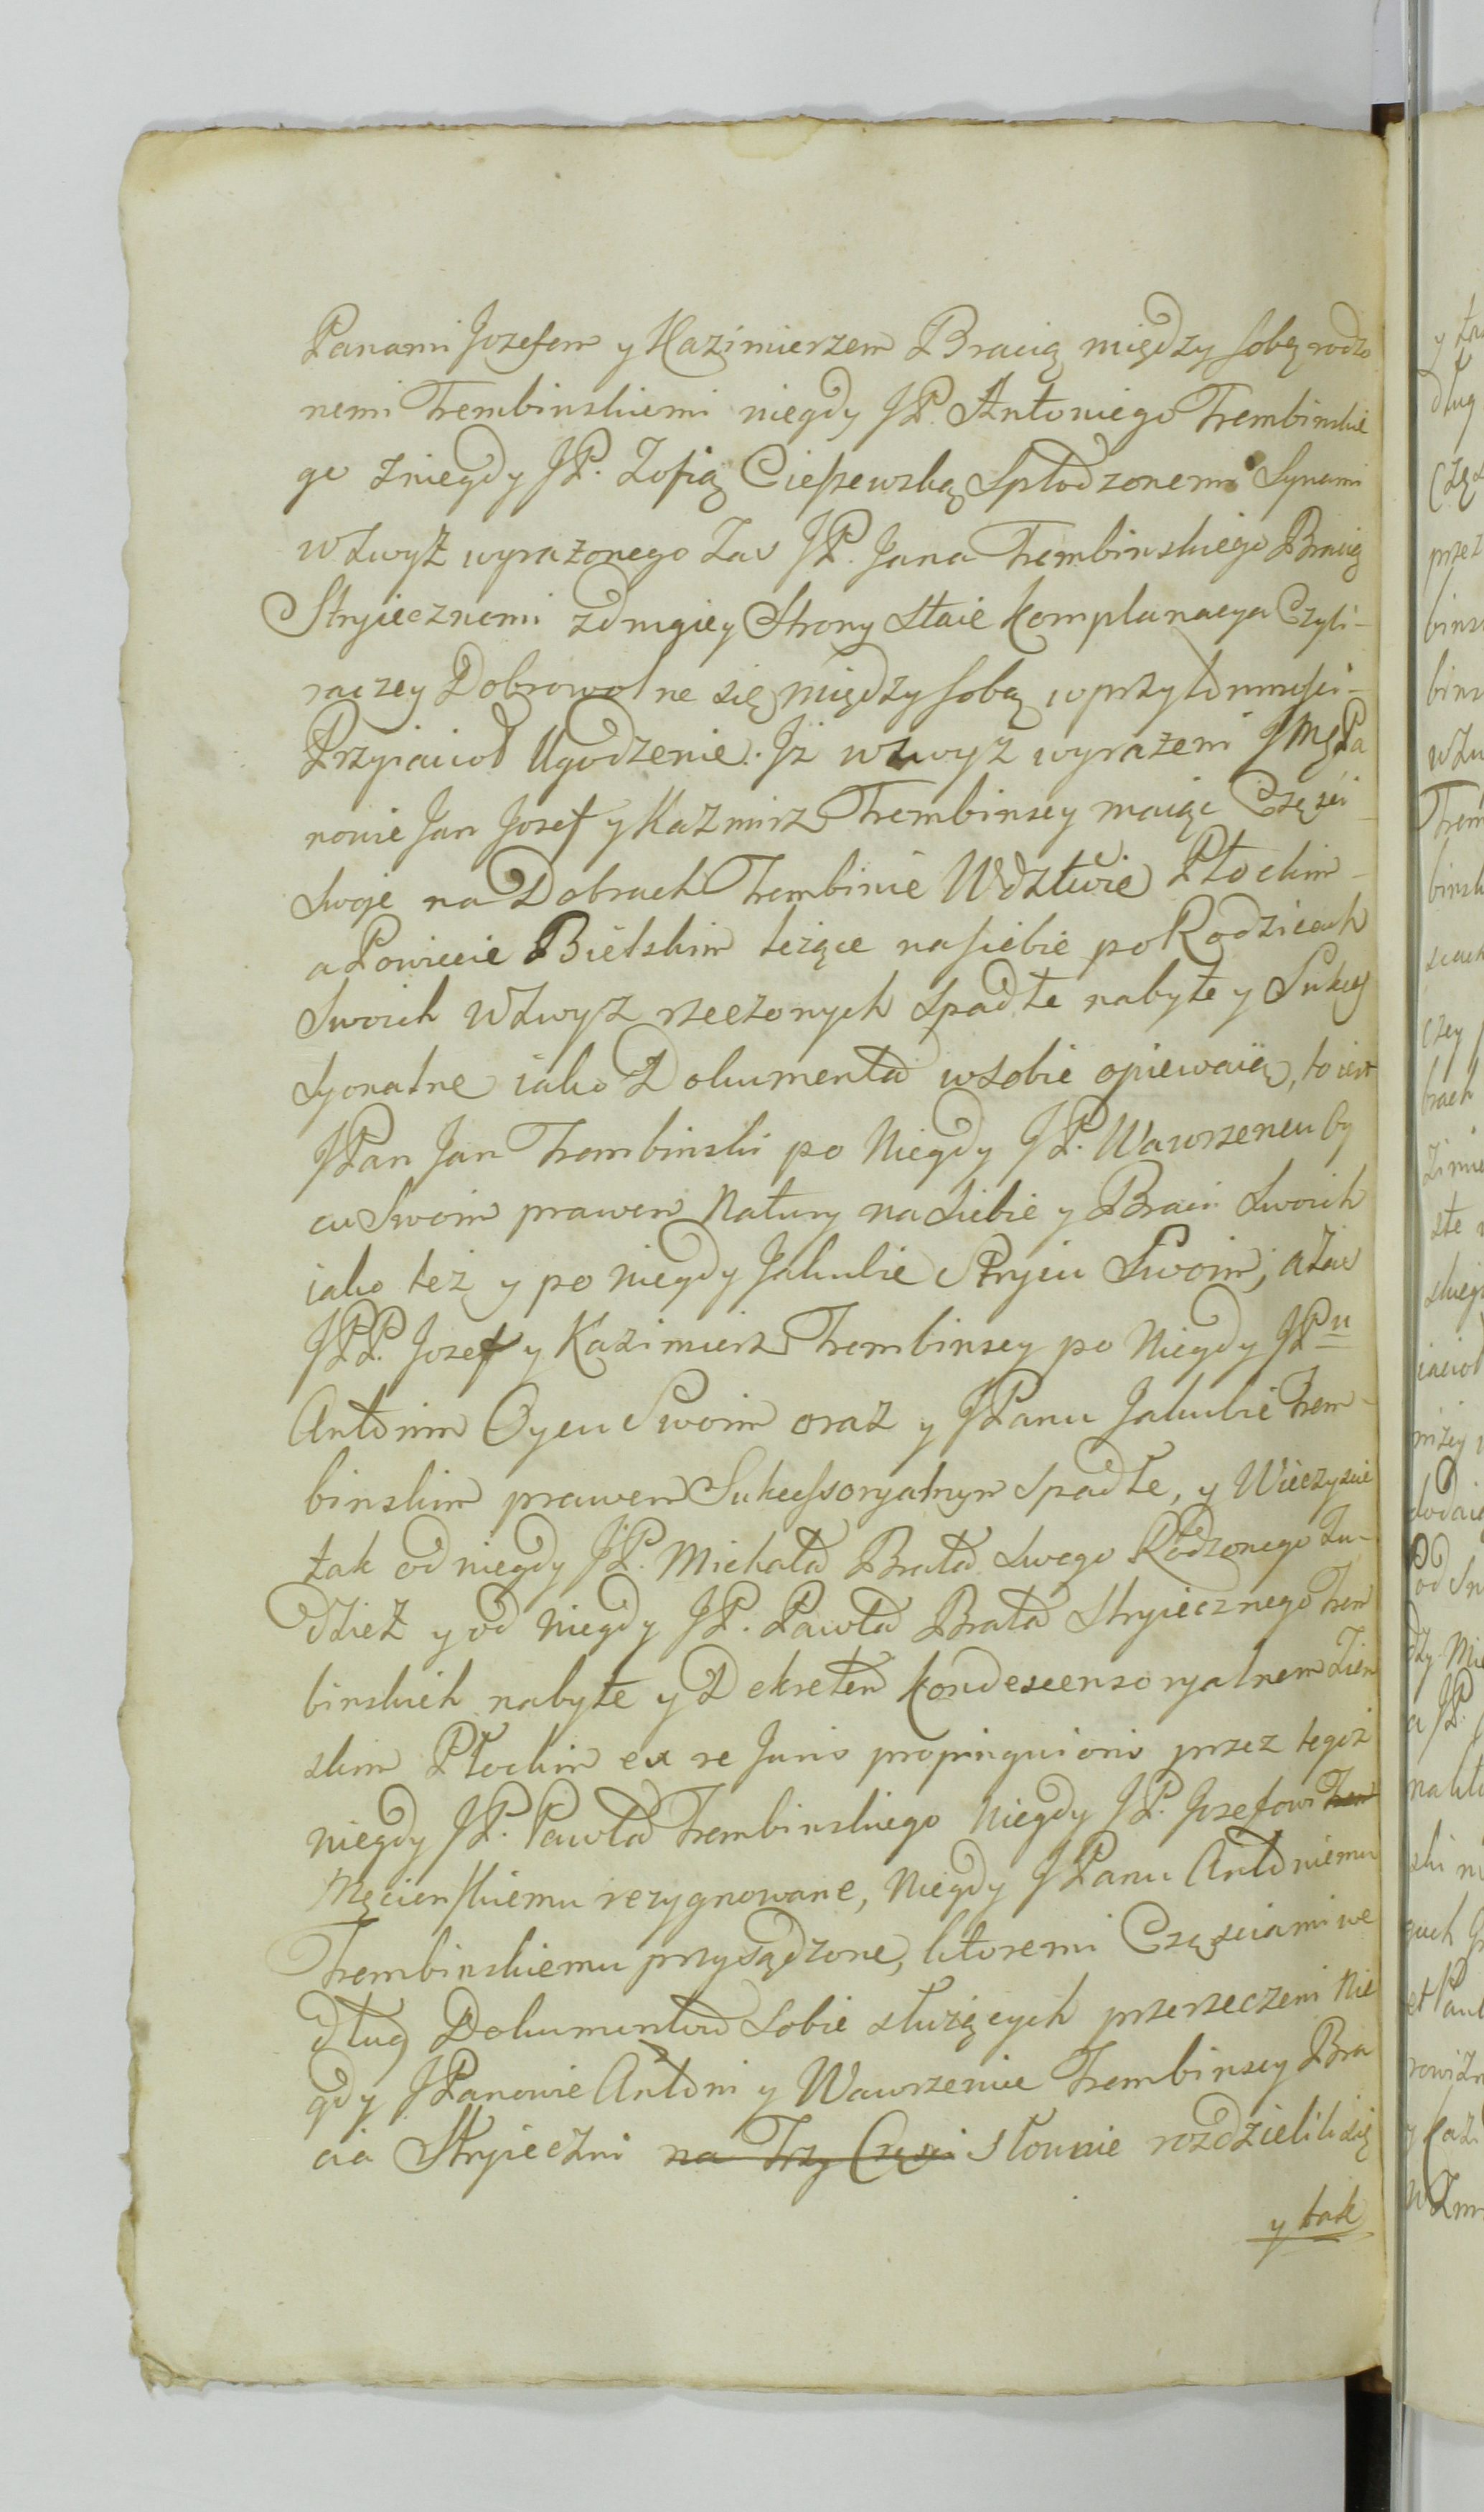 Panami Jozefem y Kazimierzem Bracią między sobą rodzo
nemi Trembinskiemi niegdy JP. Antoniego Trembinskie
go z niegdy JP. Zofią Ciepszewską Spłodzonemi Synami
wzwyż wyrażonego zas JP. Jana Trembinskiego Bracią
Stryiecznemi z drugiey Strony staie komplanacya Czyli-
raczey Dobrowolne się między sobą w przytomnosci-
Przyiacioł Ugodzenie. Jż wzwyż wyrażeni JMP Pa
nowie Jan Jozef y Kazmirz Trembinscy maiąc Częsci
swoje na Dobrach Trembinie W Wdztwie Płockim-
a Powiecie Bielskim leżące na siebie po Rodzicach
Swoich wzwyż rzeczonych spadłe nabyte y Sukces
syonalne iako Dokumenta w sobie opiewaią, to iest
JPan Jan Trembinski po Niegdy JP. Wawrzencu Oy
cu Swoim prawem Natury na siebie y Braci swoich
iako też y po niegdy Jakubie Stryiu Swoim, a zas
JPP. Jozef y Kazimierz Trembinscy po Niegdy JPu
Antonim Oycu Swoim oraz y JPanu Jakubie Trem-
binskim prawem Sukcessoryalnym spadłe, y Wieczyscie
tak od niegdy JP. Michała Brata swego Rodzonego tu-
dzież y od niegdy JP. Pawła Brata stryiecznego Trem
binskich nabyte y Dekretem kondescensoryalnem Ziem
skim Płockim ex re Juris propinquioris przez tegoż
niegdy JP. Pawła Trembinskiego Niegdy JP. Jozefowi Trem
Męcienskiemu rezygnowane, Niegdy JPanu Antoniemu
Trembinskiemu przysądzone, ktoremi Częsciami we
dług Dokumentow sobie służących przerzeczeni Nie
gdy JPanowie Antoni y Wawrzeniec Trembinscy Bra
cia Stryieczni na Trzy Częsci słownie rozdzielili się
y tak